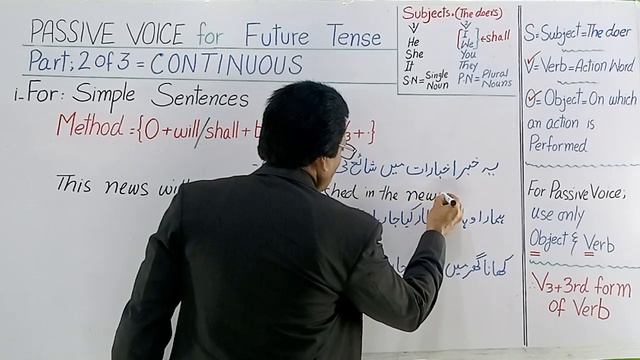 PASSIVE VOICE for Future Tense
Part; 2 of 3 = CONTINUOUS
i- For: Simple Sentences
Method = {O + will/shall + 3 + . }
یہ خبر اخبارات میں شائع
This news in the new
ہمارا
کھانا گھر میں
Subjects. (The doers)
He
She
It
SN = Single Noun
I
We
You
They
P.N = Plural Nouns
+ shall
S = Subject = The doer
V = Verb = Action Word
O = Object = On which
an action is
Performed
For Passive Voice;
use only
Object & Verb
V3 + 3rd form
of Verb